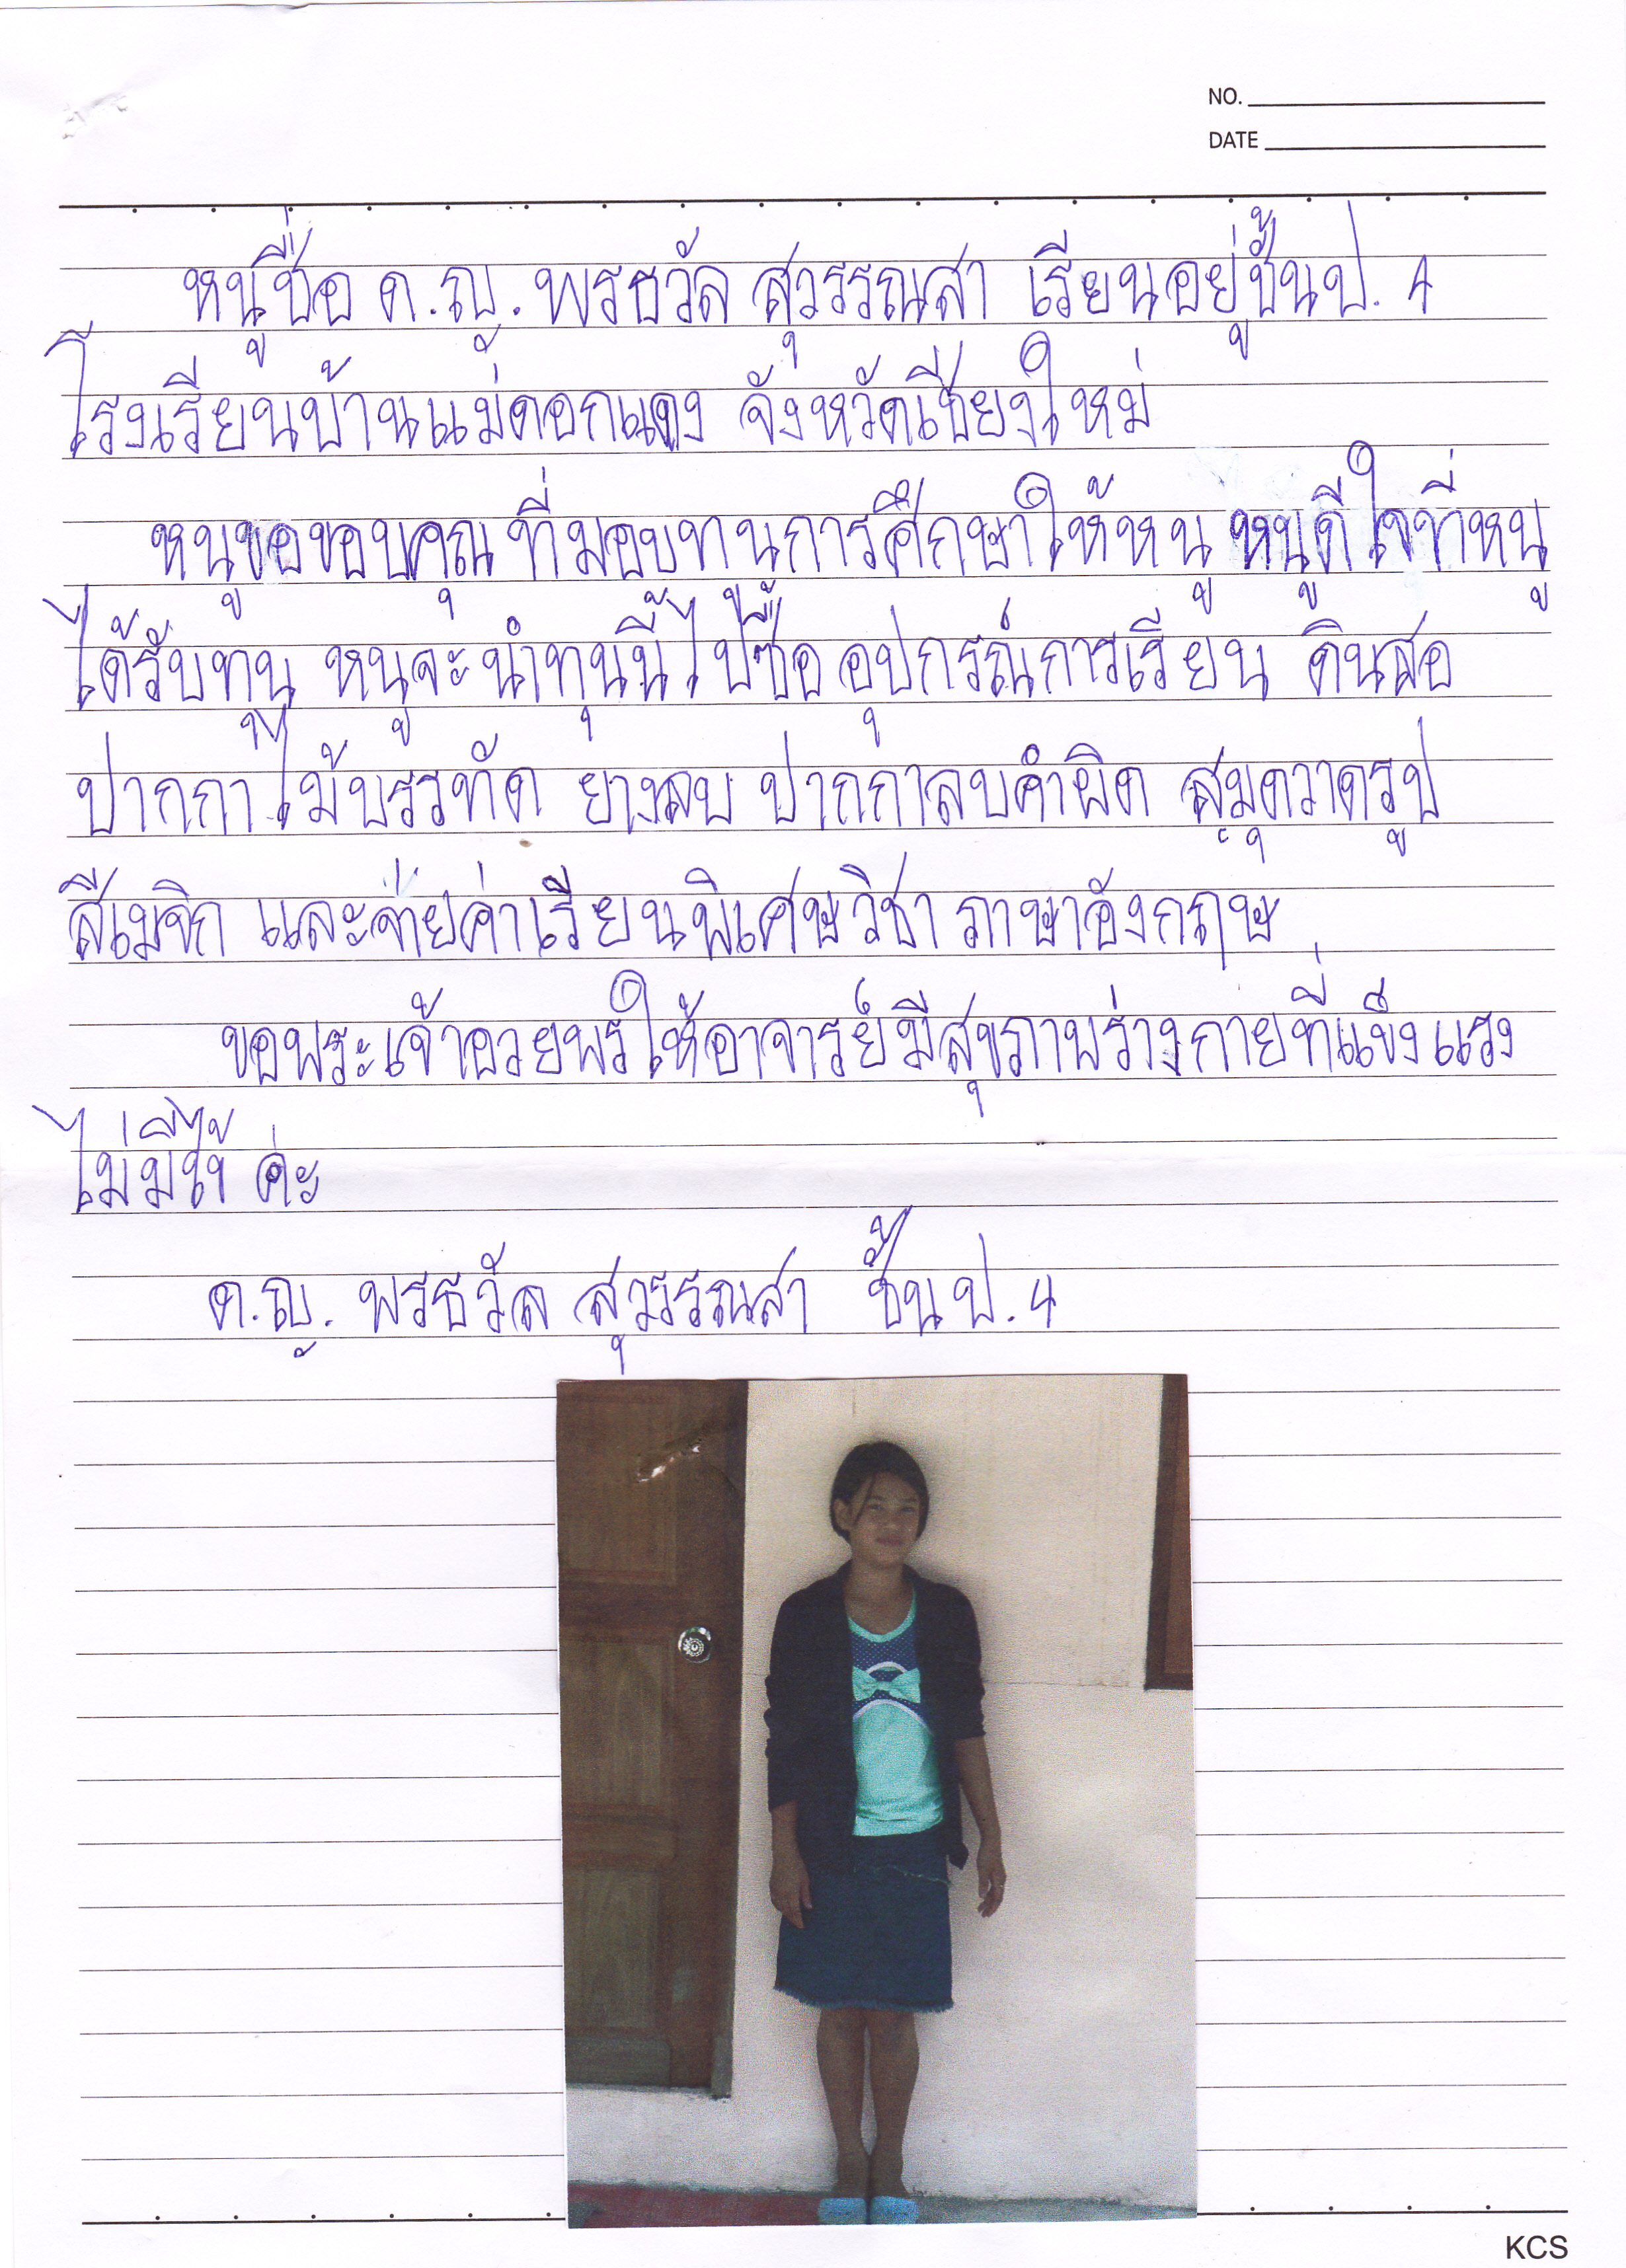 NO.
DATE
หนูชื่อ ด.ญ. พรธวัล สุวรรณสา เรียนอยู่ชั้นป. 4
โรงเรียนบ้านแม่ดอกแดง จังหวัดเชียงใหม่
หนูขอขอบคุณ ที่มอบทุนการศึกษาให้หนู หนูดีใจที่หนู
ได้รับทุน หนูจะนำทุนนี้ไปซื้อ อุปกรณ์การเรียน ดินสอ
ปากกา ไม้บรรทัด ยางลบ ปากกาลบคำผิด สมุดวาดรูป
สีเมจิก และจ่ายค่าเรียนพิเศษวิชา ภาษาอังกฤษ
ขอพระเจ้าอวยพรให้อาจารย์มีสุขภาพร่างกายที่แข็งแรง
ไม่มีไข้ ค่ะ
ด.ญ. พรธวัล สุวรรณสา ชั้น ป. 4
KCS